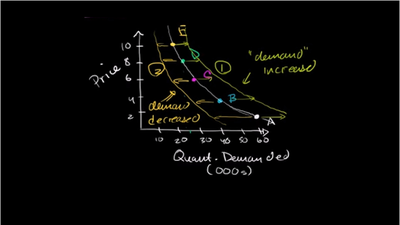 E
10
D
"demand"
increased
8
②
C
①
Price
6
demand
decreased
B
4
2
A
10 20 30 40 50 60
Quant. Demanded
(000s)